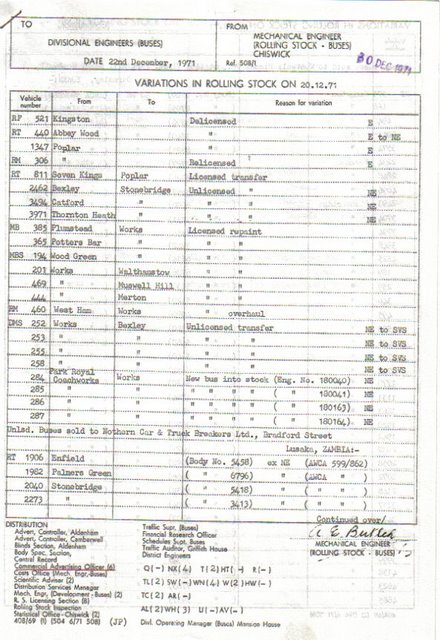 TO
DIVISIONAL ENGINEERS (BUSES)
DATE 22nd December, 1971
FROM
MECHANICAL ENGINEER
(ROLLING STOCK - BUSES)
CHISWICK
Ref. 508/1
30 DEC 1971
VARIATIONS IN ROLLING STOCK ON 20.12.71
Vehicle number From To Reason for variation
RF 521 Kingston Delicensed E
RT 440 Abbey Wood " E to NE
1347 Poplar " E
RM 306 " Relicensed E
RT 811 Seven Kings Poplar Licensed transfer
2462 Bexley Stonebridge Unlicensed " NE
3494 Catford " " " NE
3971 Thornton Heath " " " NE
MB 385 Plumstead Works Licensed repaint
365 Potters Bar " " "
MBS 194 Wood Green " " "
201 Works Walthamstow " "
469 " Muswell Hill " "
444 " Merton " "
RM 460 West Ham Works " overhaul
DMS 252 Works Bexley Unlicensed transfer NE to SVS
253 " " " " NE to SVS
255 " " " " NE to SVS
258 " " " " NE to SVS
284 Park Royal Coachworks Works New bus into stock (Eng. No. 180040) NE
285 " " " " " " ( " 180041) NE
286 " " " " " " ( " 180163) NE
287 " " " " " " ( " 180164) NE
Unlsd. Buses sold to Nothern Car & Truck Breakers Ltd., Bradford Street
Lusaka, ZAMBIA:-
RT 1906 Enfield (Body No. 5458) ex NE (AWCA 599/862)
1982 Palmers Green ( " 6796) " (AWCA " )
2040 Stonebridge ( " 5418) " ( " " )
2273 " ( " 3413) " ( " " )
Continued over/
A E Butler
MECHANICAL ENGINEER
(ROLLING STOCK - BUSES)
DISTRIBUTION
Advert. Controller, Aldenham
Advert. Controller, Camberwell
Blinds Section, Aldenham
Body Spec. Section,
Central Record
Commercial Advertising Officer (6)
Costs Office (Mech. Engr.-Buses)
Scientific Adviser (2)
Distribution Services Manager
Mech. Engr. (Development - Buses) (2)
R. S. Licensing Section (8)
Rolling Stock Inspection
Statistical Office - Chiswick (2)
408/69 (1) (504 6/71 508) (JP)
Traffic Supr. (Buses)
Financial Research Officer
Schedules Supt. Buses
Traffic Auditor, Griffith House
District Engineers
Q(-) NX(4) T(2)HT(-) R(-)
TL(2)SW(-)WN(4)W(2)HW(-)
TC(2)AR(-)
AL(2)WH(3) U(-)AV(-)
Divl. Operating Manager (Buses) Mansion House